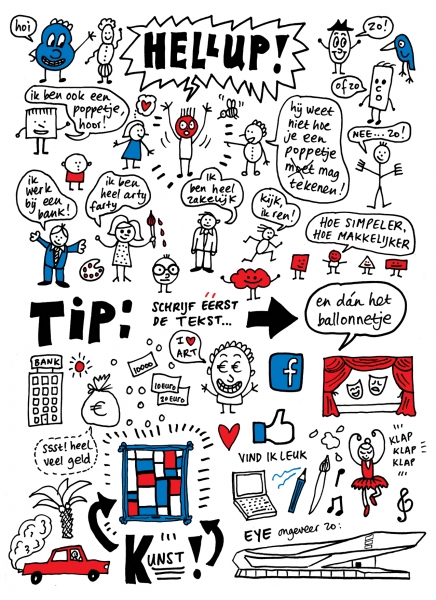 hoi
HELLUP!
zo!
of zo
NEE...zo!
ik ben ook een
poppetje,
hoor!
hij weet
niet hoe
je een
poppetje
moet mag
tekenen!
ik
werk
bij een
bank!
ik ben
heel arty
farty
ik
ben heel
zakelijk
kijk,
ik ren!
HOE SIMPELER,
HOE MAKKELIJKER
TIP:
SCHRIJF EERST
DE TEKST...
en dán het
ballonnetje
BANK
10000
10 EURO
20 EURO
I ♥
ART
f
€
ssst! heel
veel geld
VIND IK LEUK
KLAP
KLAP
KLAP
KUNST!
EYE ongeveer zo: